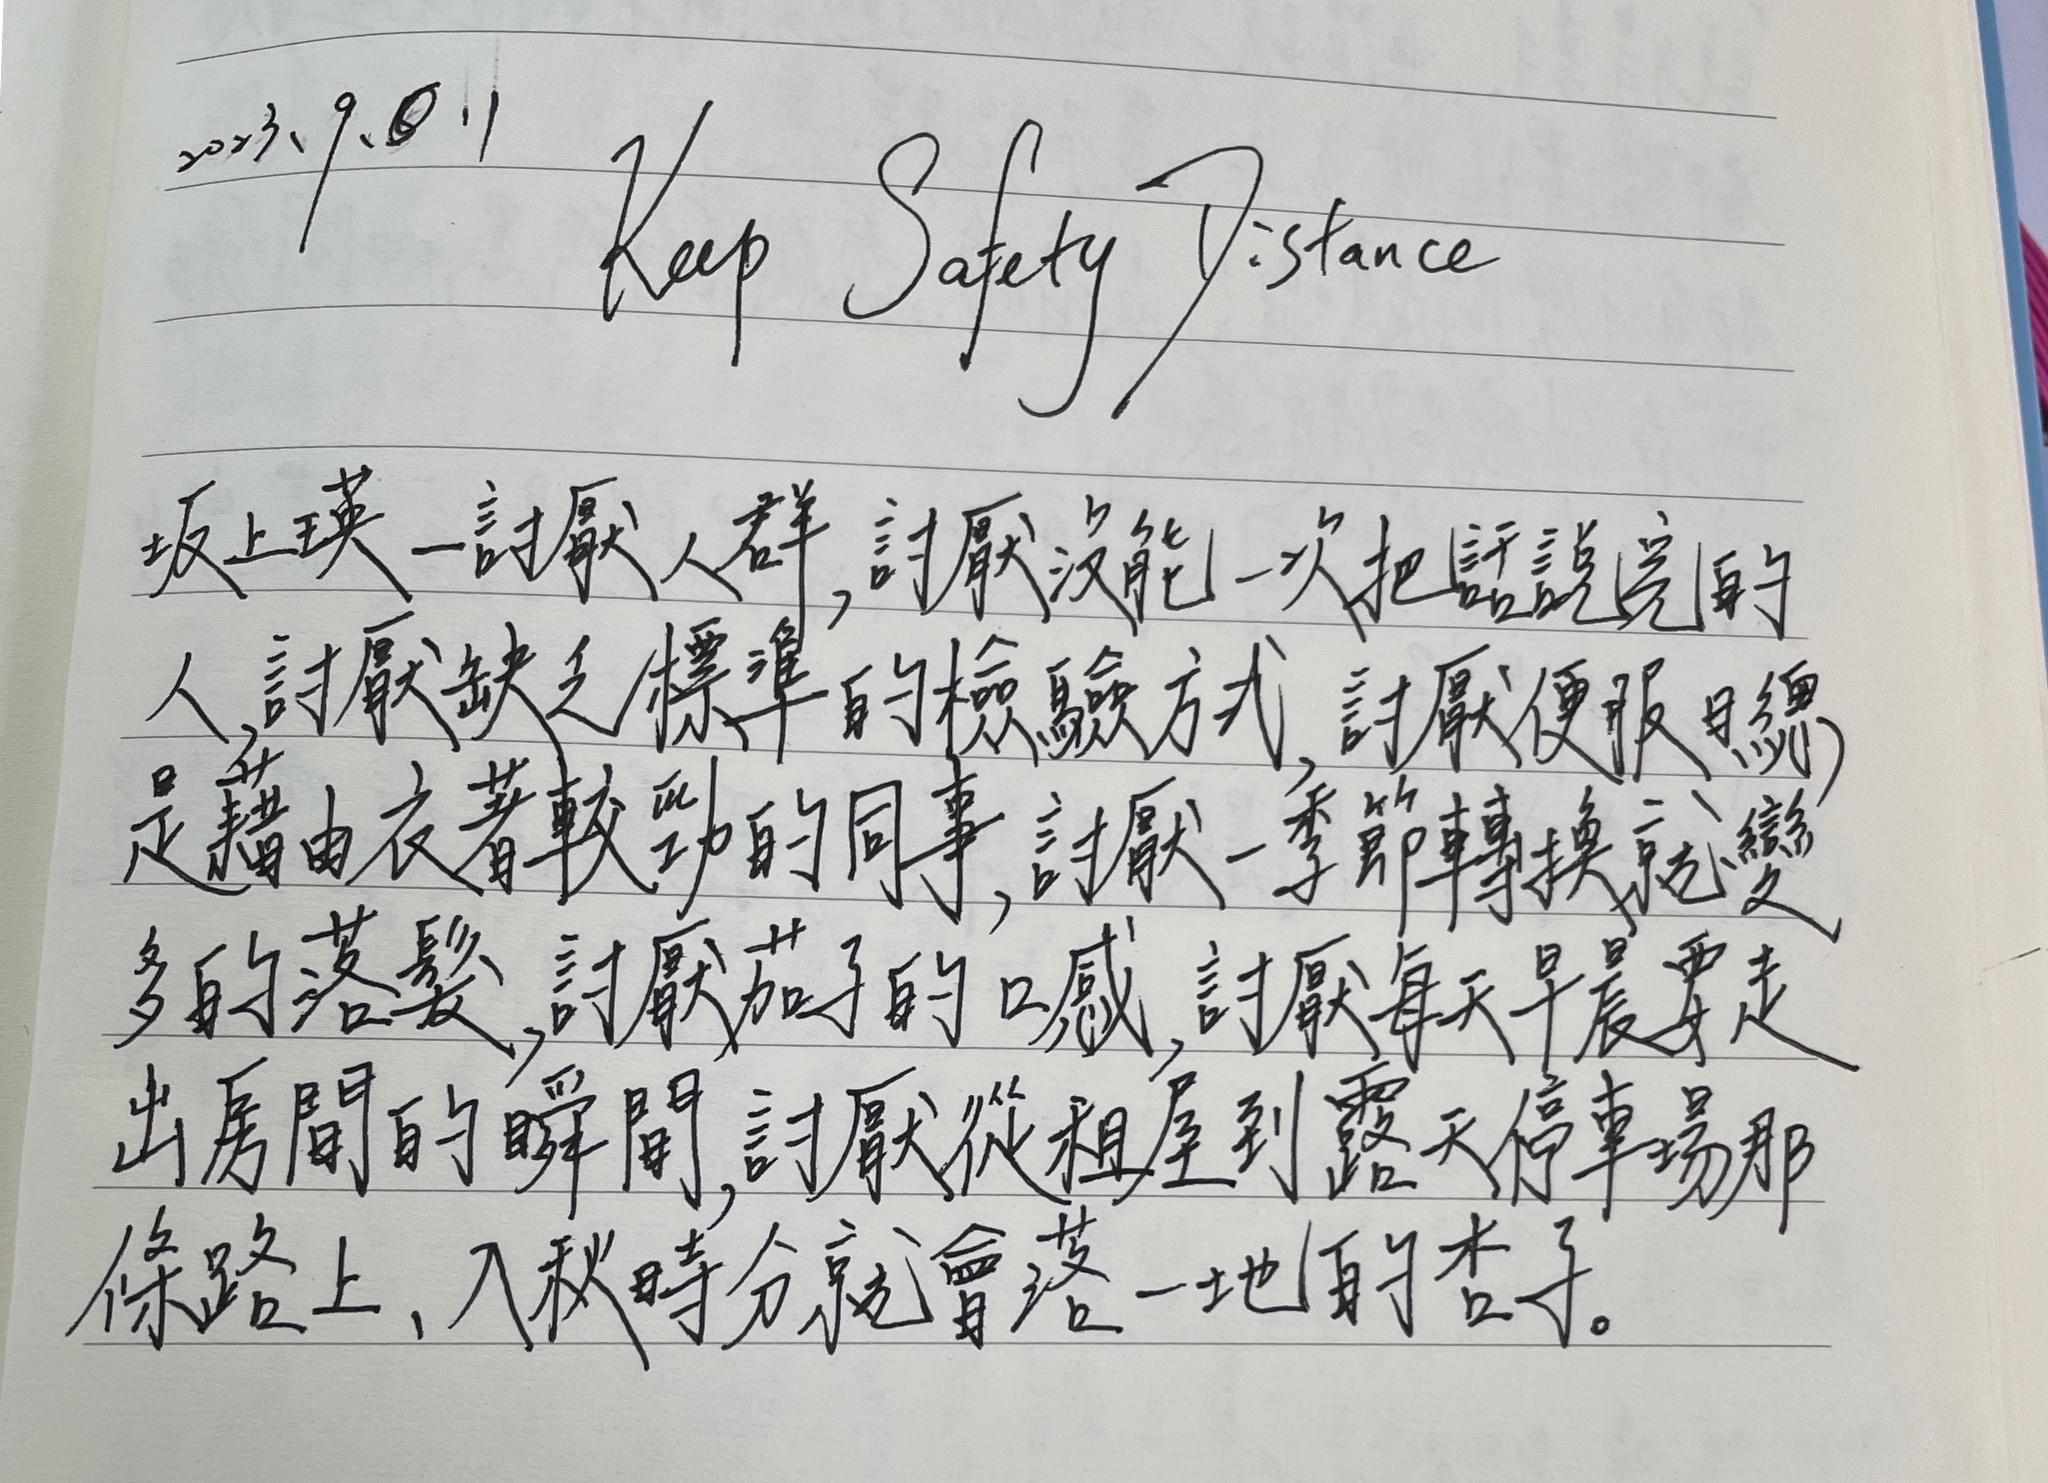 2023、9、6.11
Keep Safety Distance
坂上瑛一討厭人群,討厭沒能一次把話說完的
人,討厭缺乏標準的檢驗方式,討厭便服日總
是藉由衣著較勁的同事,討厭一季節轉換就變
多的落髮,討厭茄子的口感,討厭每天早晨要走
出房間的瞬間,討厭從租屋到露天停車場那
條路上、入秋時分就會落一地的杏子。